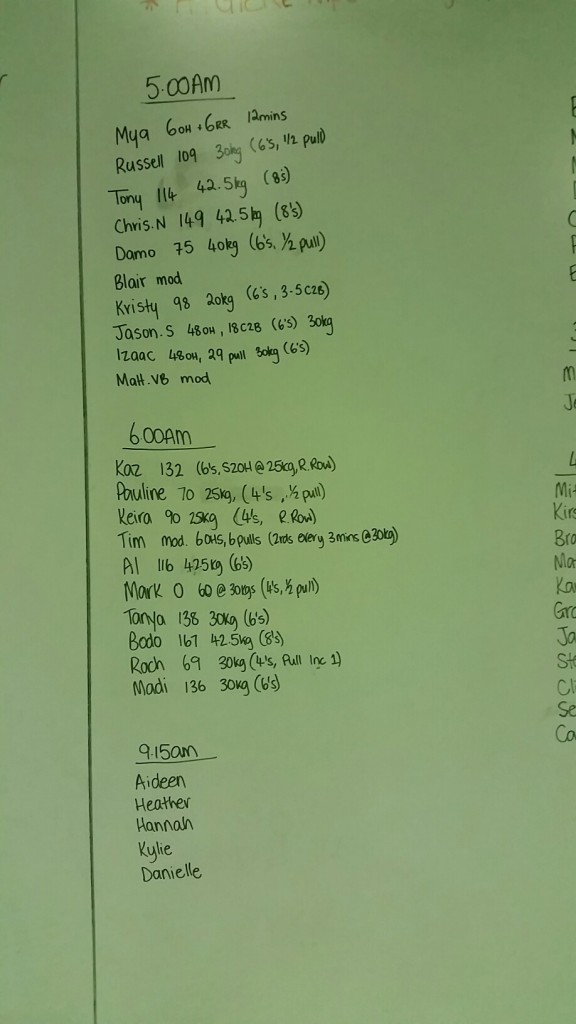 5.00AM
Mya 6OH + 6RR 12mins
Russell 109 30kg (6's, 1/2 pull)
Tony 114 42.5kg (8's)
Chris.N 149 42.5kg (8's)
Damo 75 40kg (6's, 1/2 pull)
Blair mod
Kristy 98 20kg (6's, 3-5 C2B)
Jason.S 48OH, 18C2B (6's) 30kg
Izaac 48OH, 29 pull 30kg (6's)
Matt.VB mod
6.00AM
Kaz 132 (6's, S2OH @ 25kg, R.Row)
Pauline 70 25kg, (4's, 1/2 pull)
Keira 90 25kg (4's, R.Row)
Tim mod. 6OHS, 6pulls (2rds every 3mins @30kg)
Al 116 42.5kg (6's)
Mark O 60 @ 30kgs (4's, 1/2 pull)
Tanya 138 30kg (6's)
Bodo 167 42.5kg (8's)
Rach 69 30kg (4's, Pull Inc 1)
Madi 136 30kg (6's)
9.15am
Aideen
Heather
Hannah
Kylie
Danielle